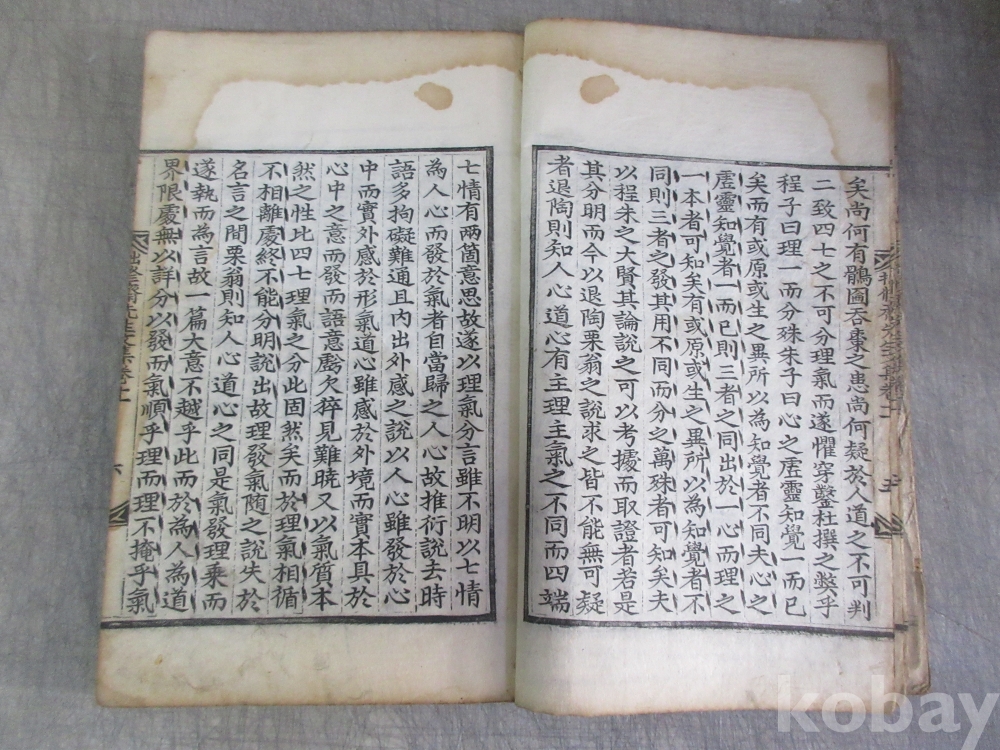 矣尚何有鶻圖吞棗之患尚何疑於人道之不可判
二致四七之不可分理氣而遂懼穿鑿杜撰之弊乎
程子曰理一而分殊朱子曰心之虛靈知覺一而已
矣而有或原或生之異所以為知覺者不同夫心之
虛靈知覺者一而已則三者之同出於一心而理之
一本者可知矣有或原或生之異所以為知覺者不
同則三者之發其用不同而分之萬殊者可知矣夫
以程朱之大賢其論說之可以考據而取證者若是
其分明而今以退陶栗翁之說求之皆不能無可疑
者退陶則知人心道心有主理主氣之不同而四端
七情有两箇意思故遂以理氣分言雖不明以七情
為人心而發於氣者自當歸之人心故推衍說去時
語多拘礙難通且內出外感之說以人心雖發於心
中而實外感於形氣道心雖感於外境而實本具於
心中之意而發而語意虧欠猝見難曉又以氣質本
然之性比四七理氣之分此固然矣而於理氣相循
不相離處終不能分明說出故理發氣随之說失於
名言之間栗翁則知人心道心之同是氣發理乗而
遂執而為言故一篇大意不越乎此而於為人為道
界限處無以詳分以發而氣順乎理而理不掩乎氣
齋先生文集卷十
六
kobay